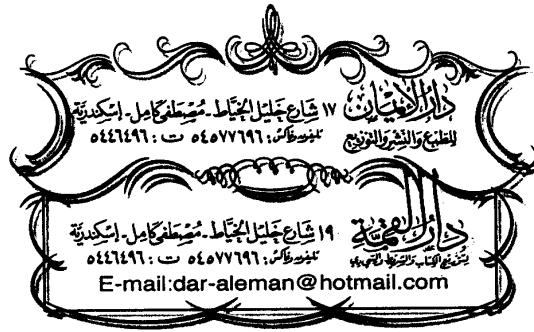 دار الإيمان
للطبع والنشر والتوزيع
١٧ شارع خليل الخياط ـ مصطفى كامل ـ إسكندرية
تليفون وفاكس : ٥٤٥٧٧٦٩٦ ت : ٥٤٤٦٤٩٦
دار القمة
لتوزيع الكتاب والشريط الخيري
١٩ شارع خليل الخياط ـ مصطفى كامل ـ إسكندرية
تليفون وفاكس : ٥٤٥٧٧٦٩٦ ت : ٥٤٤٦٤٩٦
E-mail:dar-aleman@hotmail.com